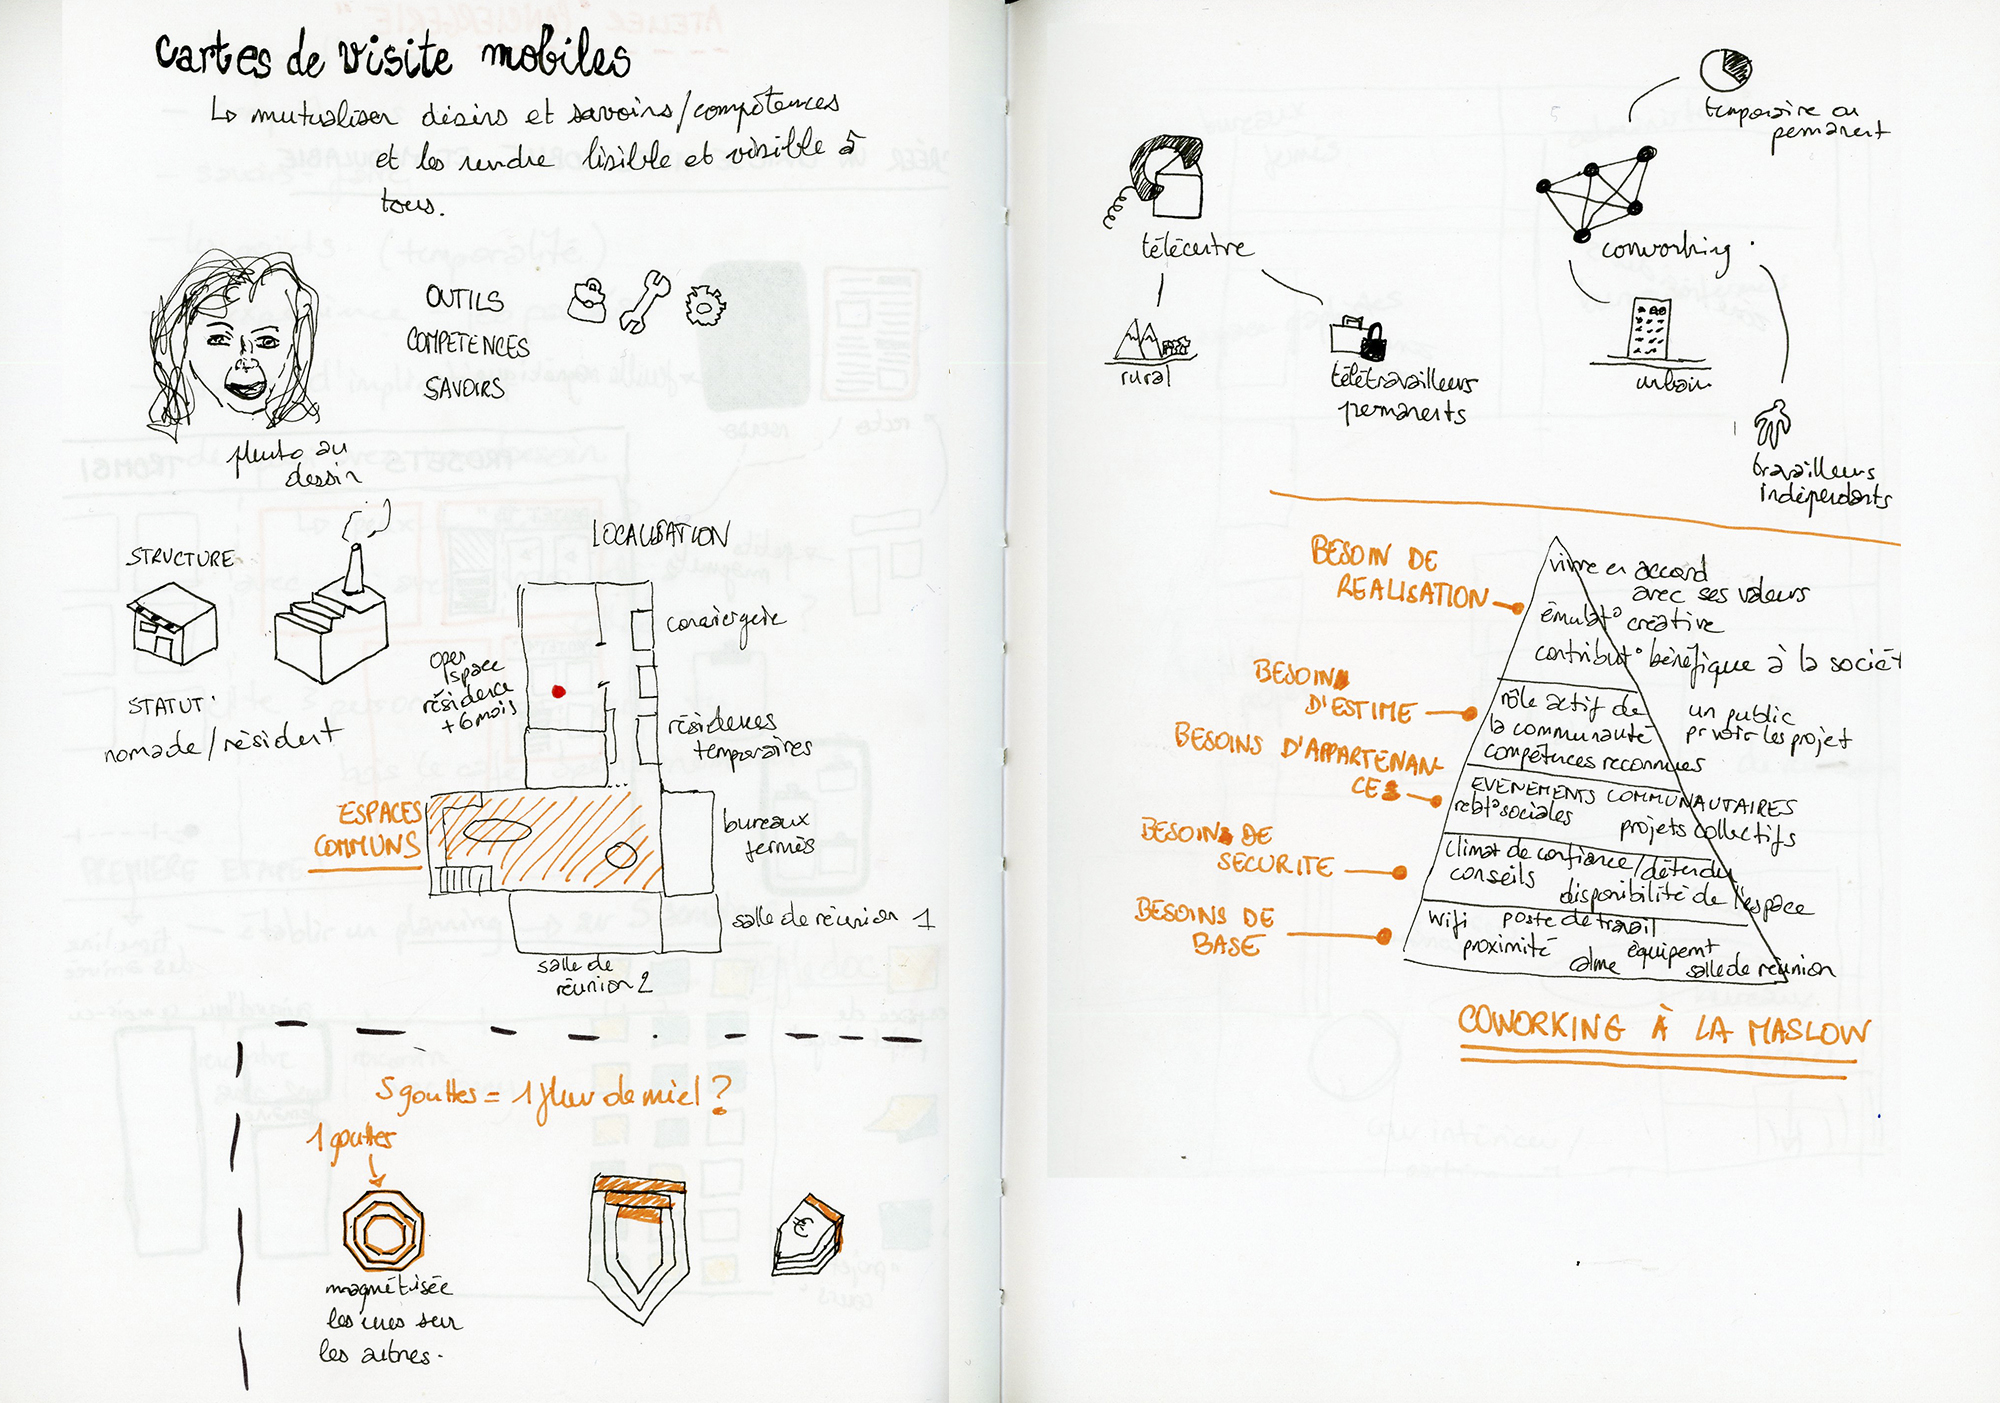 Cartes de visite mobiles
↳ mutualiser désirs et savoirs/compétences
et les rendre lisible et visible à
tous.
OUTILS
COMPETENCES
SAVOIRS
photo au
dessin
STRUCTURE
STATUT
nomade/résident
LOCALISATION
conciergerie
open
space
résidence
+6 mois
résidences
temporaires
ESPACES
COMMUNS
bureaux
fermés
salle de réunion 1
salle de
réunion 2
5 gouttes = 1 fleur de miel ?
1 gouttes
magnétisée
les unes sur
les autres.
temporaire ou
permanent
télécentre
coworking
rural
télétravailleurs
permanents
urbain
travailleurs
indépendants
BESOIN DE
REALISATION
vivre en accord
avec ses valeurs
émulat° créative
contribut° bénéfique à la sociét
BESOIN
D'ESTIME
rôle actif de
la communauté
compétences reconnues
un public
pr voir les projet
BESOINS D'APPARTENAN-
CE
EVENEMENTS COMMUNAUTAIRES
relat° sociales
projets collectifs
BESOINS DE
SECURITE
climat de confiance/détendu
conseils
disponibilité de l'espace
BESOINS DE
BASE
wifi poste de travail
proximité équipemt
calme salle de réunion
COWORKING À LA MASLOW